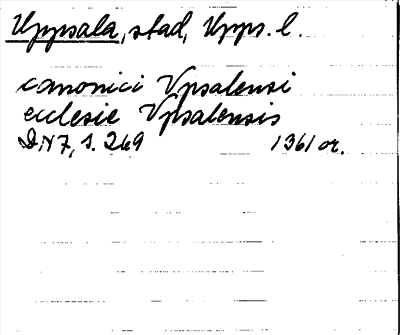 Uppsala, stad, Upps. l.
canonici Vpsalensi
ecclesie Vpsalensis
DN 7, s. 269 1361 or.